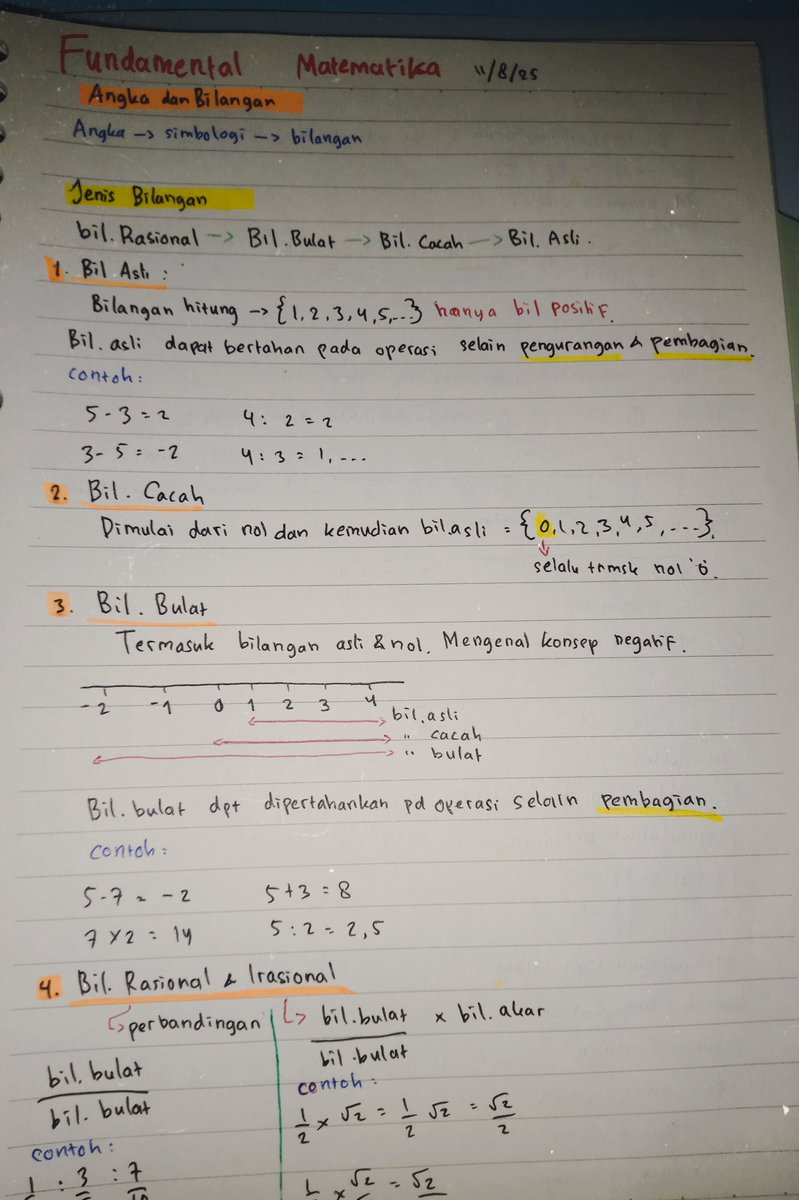 Fundamental Matematika 11/8/25
Angka dan Bilangan
Angka → simbologi → bilangan
Jenis Bilangan
bil. Rasional → Bil. Bulat → Bil. Cacah → Bil. Asli.
1. Bil Asli :
Bilangan hitung → {1, 2, 3, 4, 5,...} hanya bil positif.
Bil. asli dapat bertahan pada operasi selain pengurangan & pembagian.
contoh :
5 - 3 = 2 4 : 2 = 2
3 - 5 = -2 4 : 3 = 1, ...
2. Bil. Cacah
Dimulai dari nol dan kemudian bil.asli = {0, 1, 2, 3, 4, 5, ...}.
selalu trmsk nol '0.
3. Bil. Bulat
Termasuk bilangan asli & nol. Mengenal konsep negatif.
-2 -1 0 1 2 3 4
bil. asli
" cacah
" bulat
Bil. bulat dpt dipertahankan pd operasi selain pembagian.
contoh :
5 - 7 = -2 5 + 3 = 8
7 x 2 = 14 5 : 2 = 2,5
4. Bil. Rasional & Irasional
perbandingan
bil. bulat / bil. bulat
contoh :
bil. bulat / bil. bulat x bil. akar
contoh :
1/2 x √2 = 1/2 √2 = √2/2